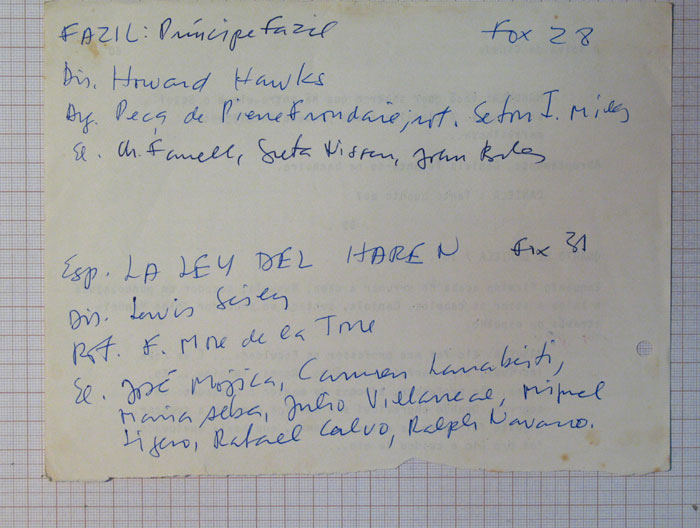 FAZIL: Príncipe Fazil Fox 28
Dir. Howard Hawks
Ag. Peça de Pierre Frondaie, rot. Seton I. Miles
El. Ch. Farrell, Greta Nissen, John Boles
Esp. LA LEY DEL HAREN Fox 31
Dir. Lewis Seiler
Rot. F. More de la Torre
El. José Mojica, Carmen Larrabeiti,
Maria Alba, Julio Villarreal, Miguel
Ligero, Rafael Calvo, Ralph Navarro.